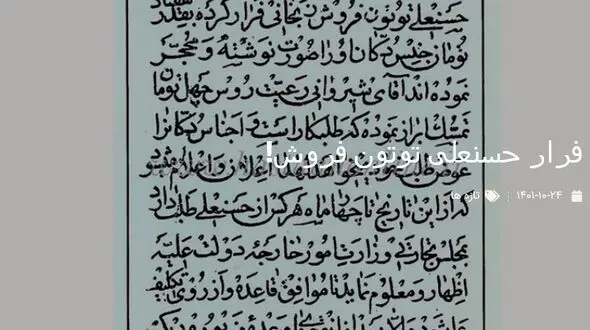 حسنعلی توتون فروش زنجانی فرار کرده بقدر
تومان جنس دکان او را صورت نوشته و محجر
نموده اند آقای شیروانی رعیت روس چهل تومان
تمسک ابراز نموده که طلبکار است و اجناس دکان را
عوض طلب خود میخواهد لهذا اعلان و اعلام میشود
که از این تاریخ تا چهار ماه هر کس از حسنعلی طلب دارد
بمجلس تجارتی وزارت امور خارجه دولت علیه
اظهار و معلوم نماید تا موافق قاعده و از روی تکلیف
فرار حسنعلی توتون فروش!
۱۴۰۱-۱۰-۲۴
تازه ها